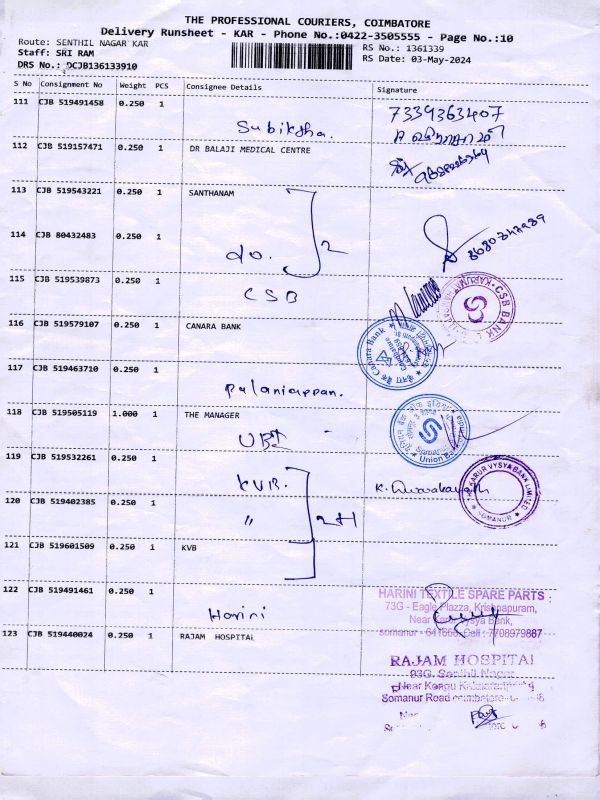 THE PROFESSIONAL COURIERS, COIMBATORE
Delivery Runsheet - KAR - Phone No.:0422-3505555 - Page No.:10
Route: SENTHIL NAGAR KAR
RS No.: 1361339
Staff: SRI RAM
RS Date: 03-May-2024
DRS No.: DCJB136133910
S No Consignment No Weight PCS Consignee Details Signature
111 CJB 519491458 0.250 1
Subiksha. 7339363407
112 CJB 519157471 0.250 1 DR BALAJI MEDICAL CENTRE
113 CJB 519543221 0.250 1 SANTHANAM
114 CJB 80432483 0.250 1
do. 2
115 CJB 519539873 0.250 1
CSB
CSB BANK
116 CJB 519579107 0.250 1 CANARA BANK
Canara Bank
117 CJB 519463710 0.250 1
Palaniappan.
118 CJB 519505119 1.000 1 THE MANAGER
UBI
Union
119 CJB 519532261 0.250 1
KVB.
KARUR VYSYA BANK LIMITED
SOMANUR
120 CJB 519402385 0.250 1
"
121 CJB 519601509 0.250 1 KVB
122 CJB 519491461 0.250 1
Harini
HARINI TEXTILE SPARE PARTS
73G - Eagle Plazza, Krishnapuram,
Near Karur Vysya Bank,
somanur - 641668, Cell : 7708979887
123 CJB 519440024 0.250 1 RAJAM HOSPITAL
RAJAM HOSPITAL
93G, Senthil Nagar
Near Kongu
Somanur Road